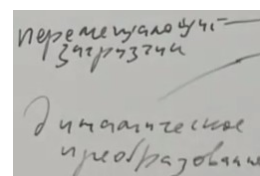 перемещающий
загрузчик
динамическое
преобразование